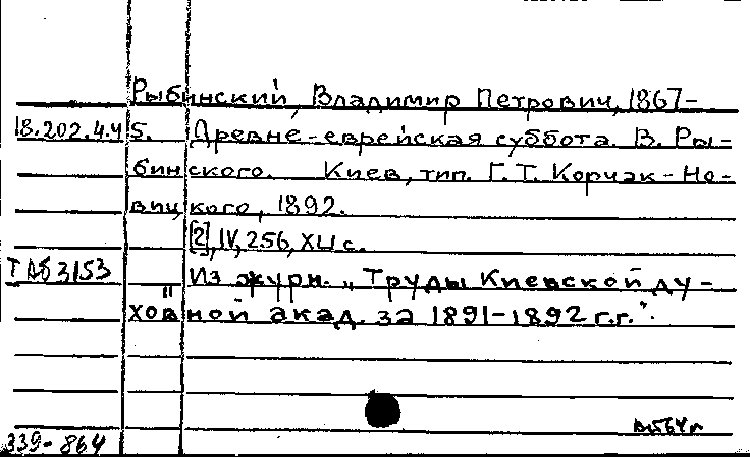 Рыбинский, Владимир Петрович, 1867-
18.202.4.45. Древне-еврейская суббота. В. Ры-
бинского. Киев, тип. Г. Т. Корчак-Но-
вицкого, 1892.
[2], IV, 256, XLI с.
Из журн. „Труды Киевской ду-
ховной акад. за 1891-1892 г.г.".
339-864